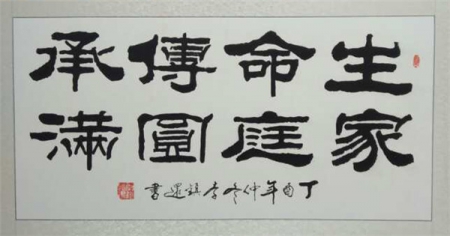 生命傳承
家庭圓滿
丁酉年仲冬李書